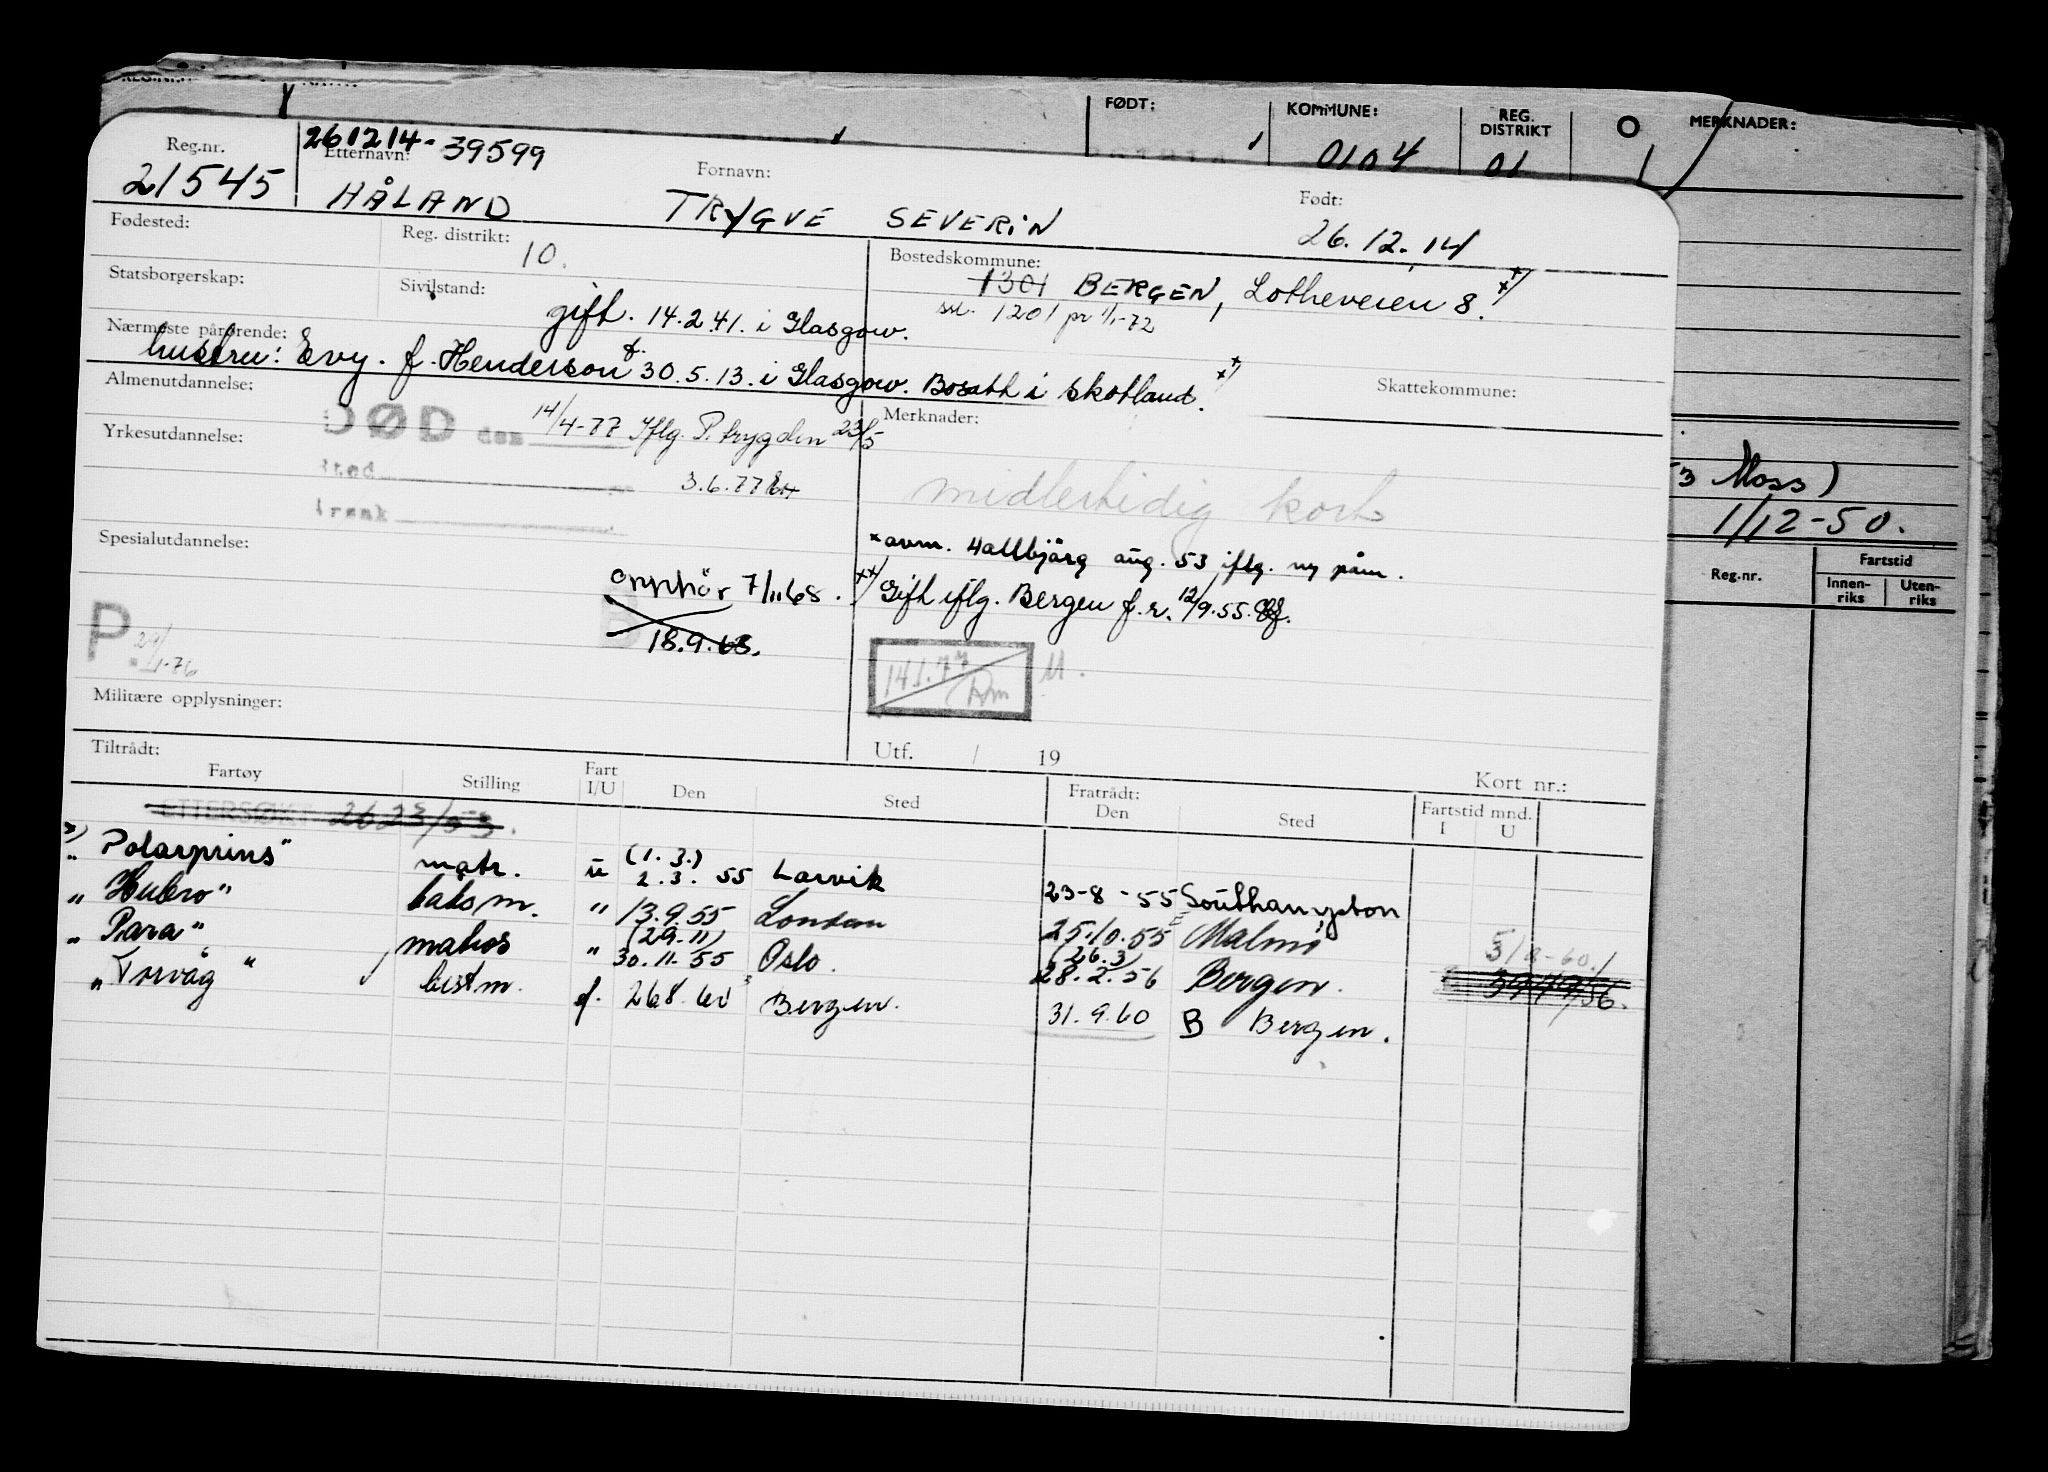 FØDT:
KOMMUNE:
REG. DISTRIKT
MERKNADER:
0104
01
Reg.nr.
261214-39599
Etternavn:
Fornavn:
Født:
21545
HÅLAND
TRYGVE SEVERIN
26.12.14
Fødested:
Reg. distrikt:
10.
Bostedskommune:
1301 BERGEN, Lotheveien 8. x)
1201 pr 1/1-72
Statsborgerskap:
Sivilstand:
gift. 14.2.41. i Glasgow.
Nærmeste pårørende:
hustru: Evy. f. Henderson f. 30.5.13. i Glasgow. Bosatt i Skotland.
Almenutdannelse:
Skattekommune:
DØD den 14/4-77 Iflg. P.trygden 23/5
Merknader:
Yrkesutdannelse:
Sted
3.6.77
midlertidig kort
Moss)
1/12-50.
x avm. Hallbjörg aug. 53 iflg. ny påm.
Spesialutdannelse:
Opphör 7/11 68.
xx) Gift iflg. Bergen f.r. 12/9.55.
18.9.63.
P. 29/1-76
14.1.77
Reg.nr.
Fartstid
Innen-riks
Uten-riks
Militære opplysninger:
Utf. / 19
Kort nr.:
Tiltrådt:
Fratrådt:
Fartøy
Stilling
Fart I/U
Den
Sted
Den
Sted
Fartstid mnd.
I
U
ETTERSØKT 2623/53.
"Polarprins" matr. u (1.3.) 2.3. 55 Larvik 23-8-55 Southampton
"Hubro" båtsm. " 13.9.55 London 25.10.55 Malmö
"Para" matros " (29.11) 30.11.55 Oslo. (26.3) 28.2.56 Bergen.
"Torvåg" bestm. f. 26.8.60 Bergen. 31.9.60 B Bergen.